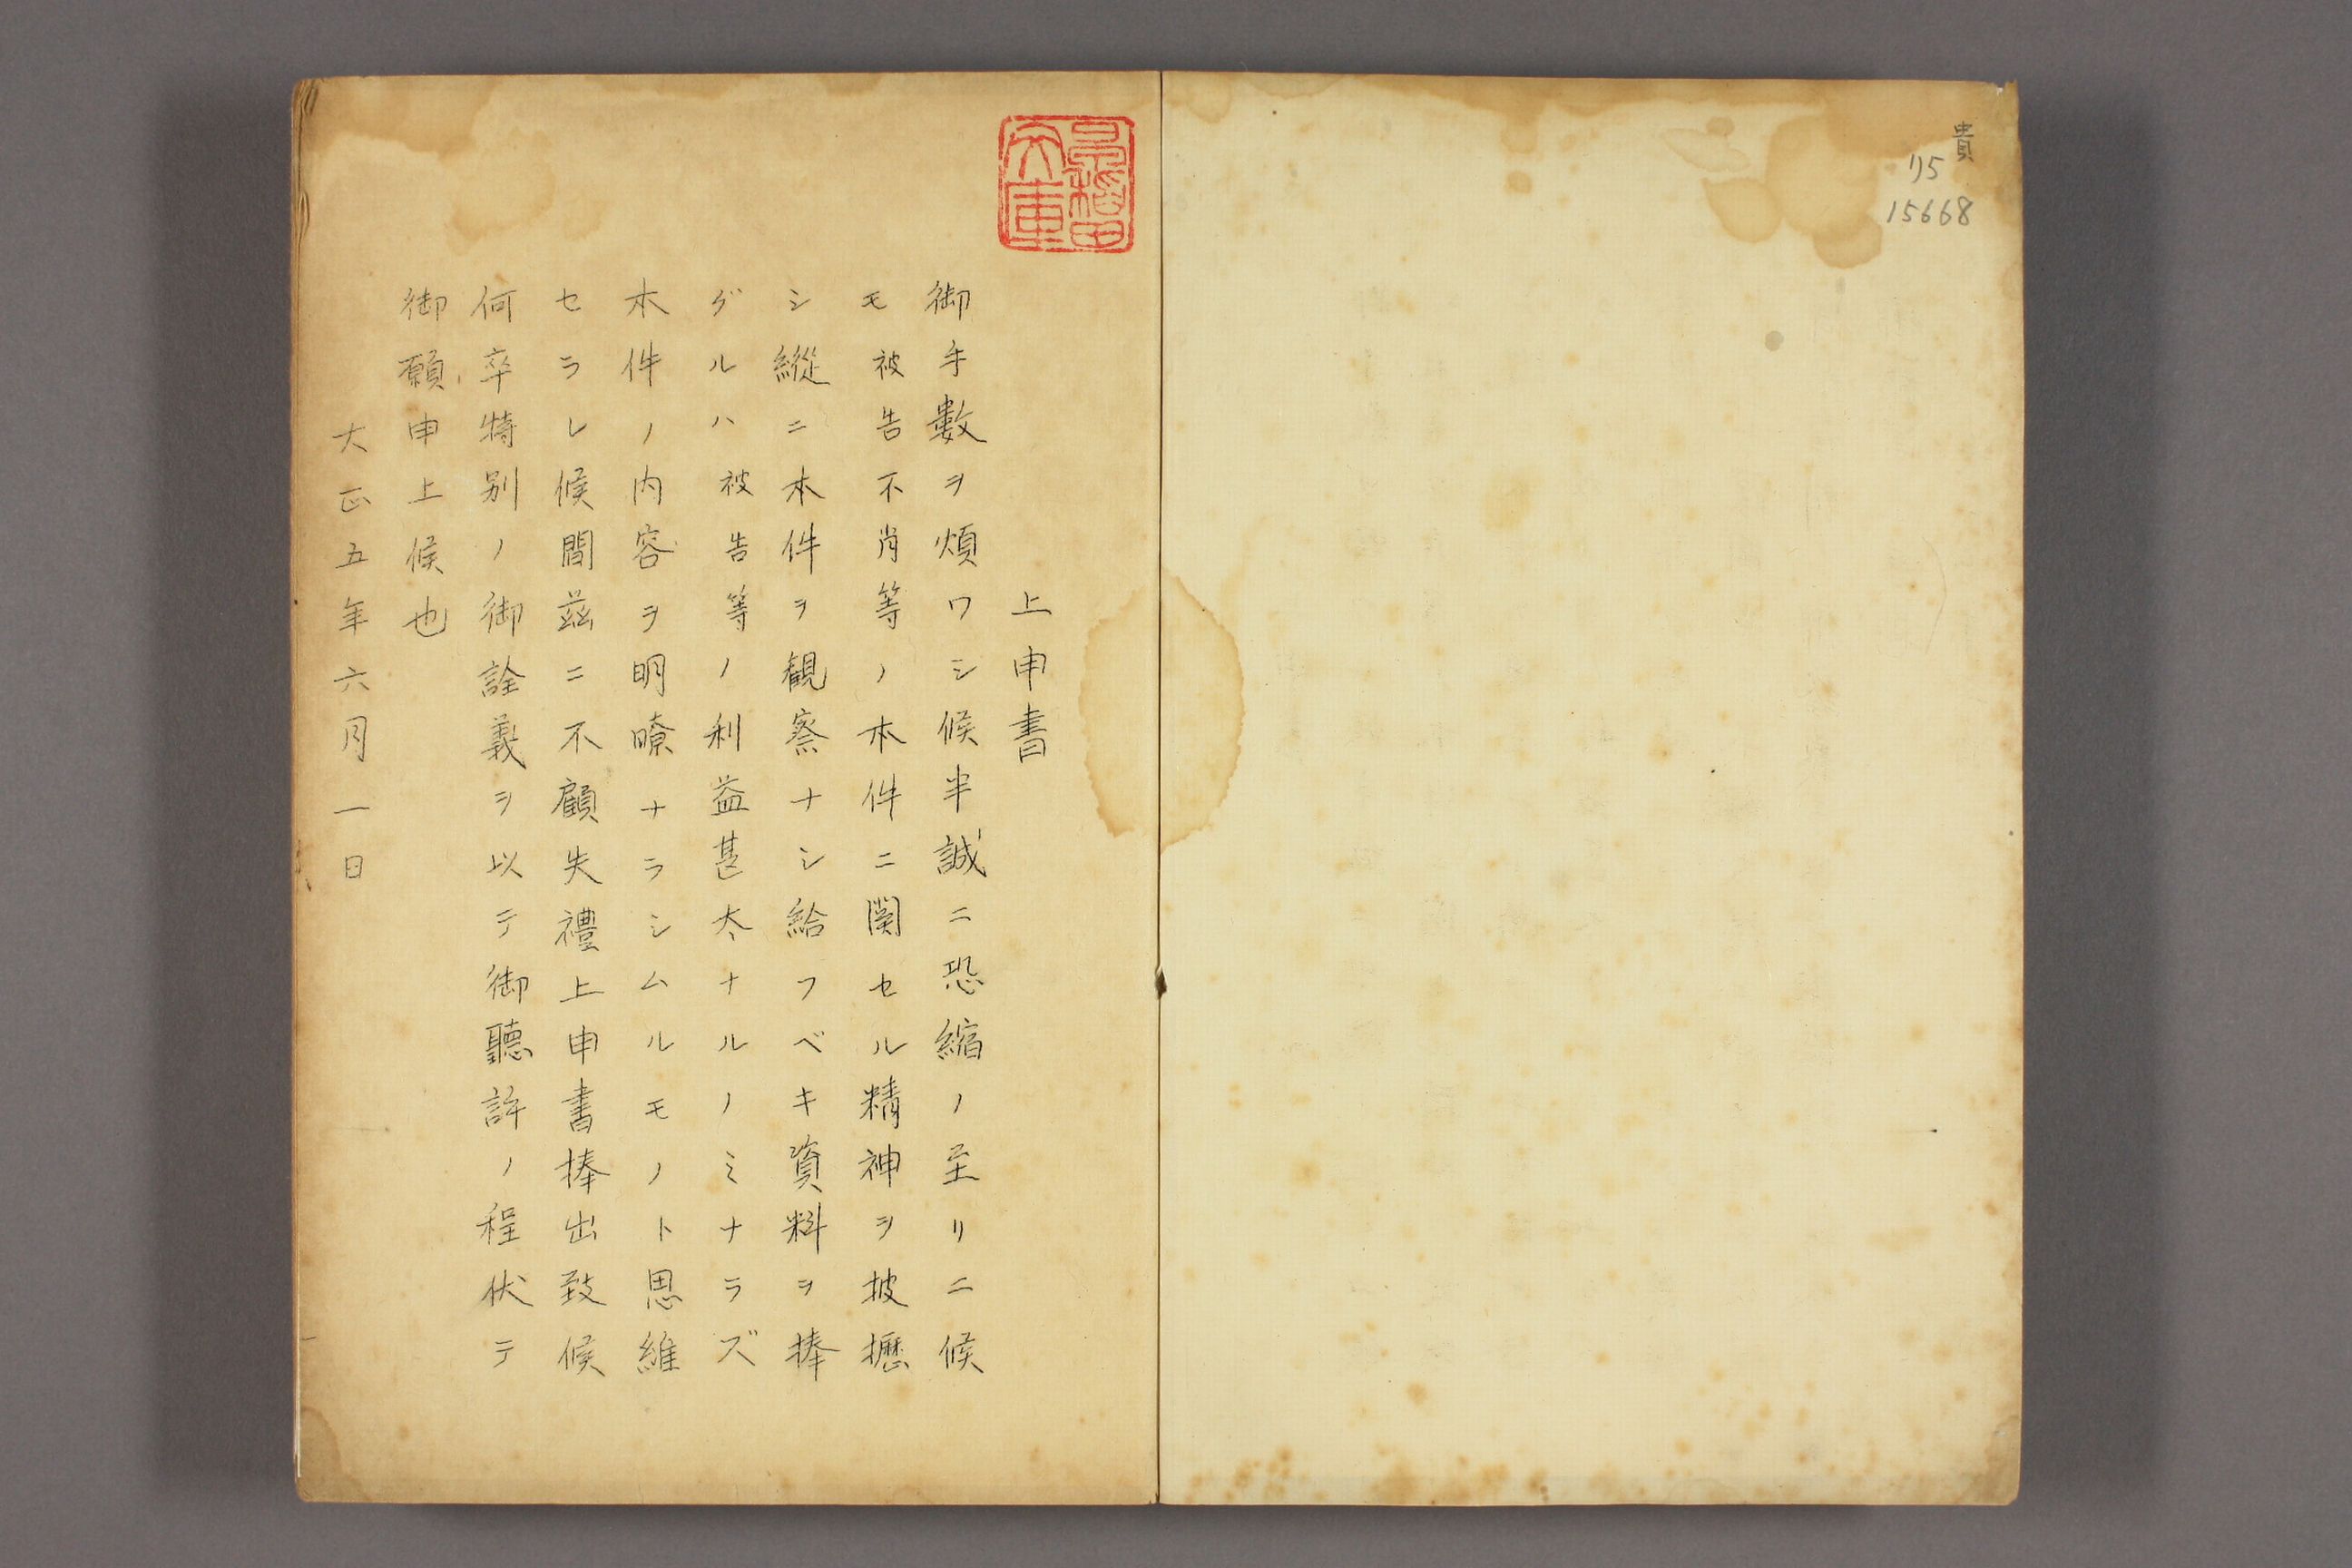 貴
リ5
15668
早稲田文庫
上申書
御手数ヲ煩ワシ候半誠ニ恐縮ノ至リニ候
モ被告不肖等ノ本件ニ関セル精神ヲ披攊
シ縦ニ本件ヲ観察ナシ給フベキ資料ヲ捧
グルハ被告等ノ利益甚大ナルノミナラズ
本件ノ内容ヲ明瞭ナラシムルモノト思維
セラレ候間茲ニ不顧失禮上申書捧出致候
何卒特別ノ御詮義ヲ以テ御聽許ノ程伏テ
御願申上候也
大正五年六月一日